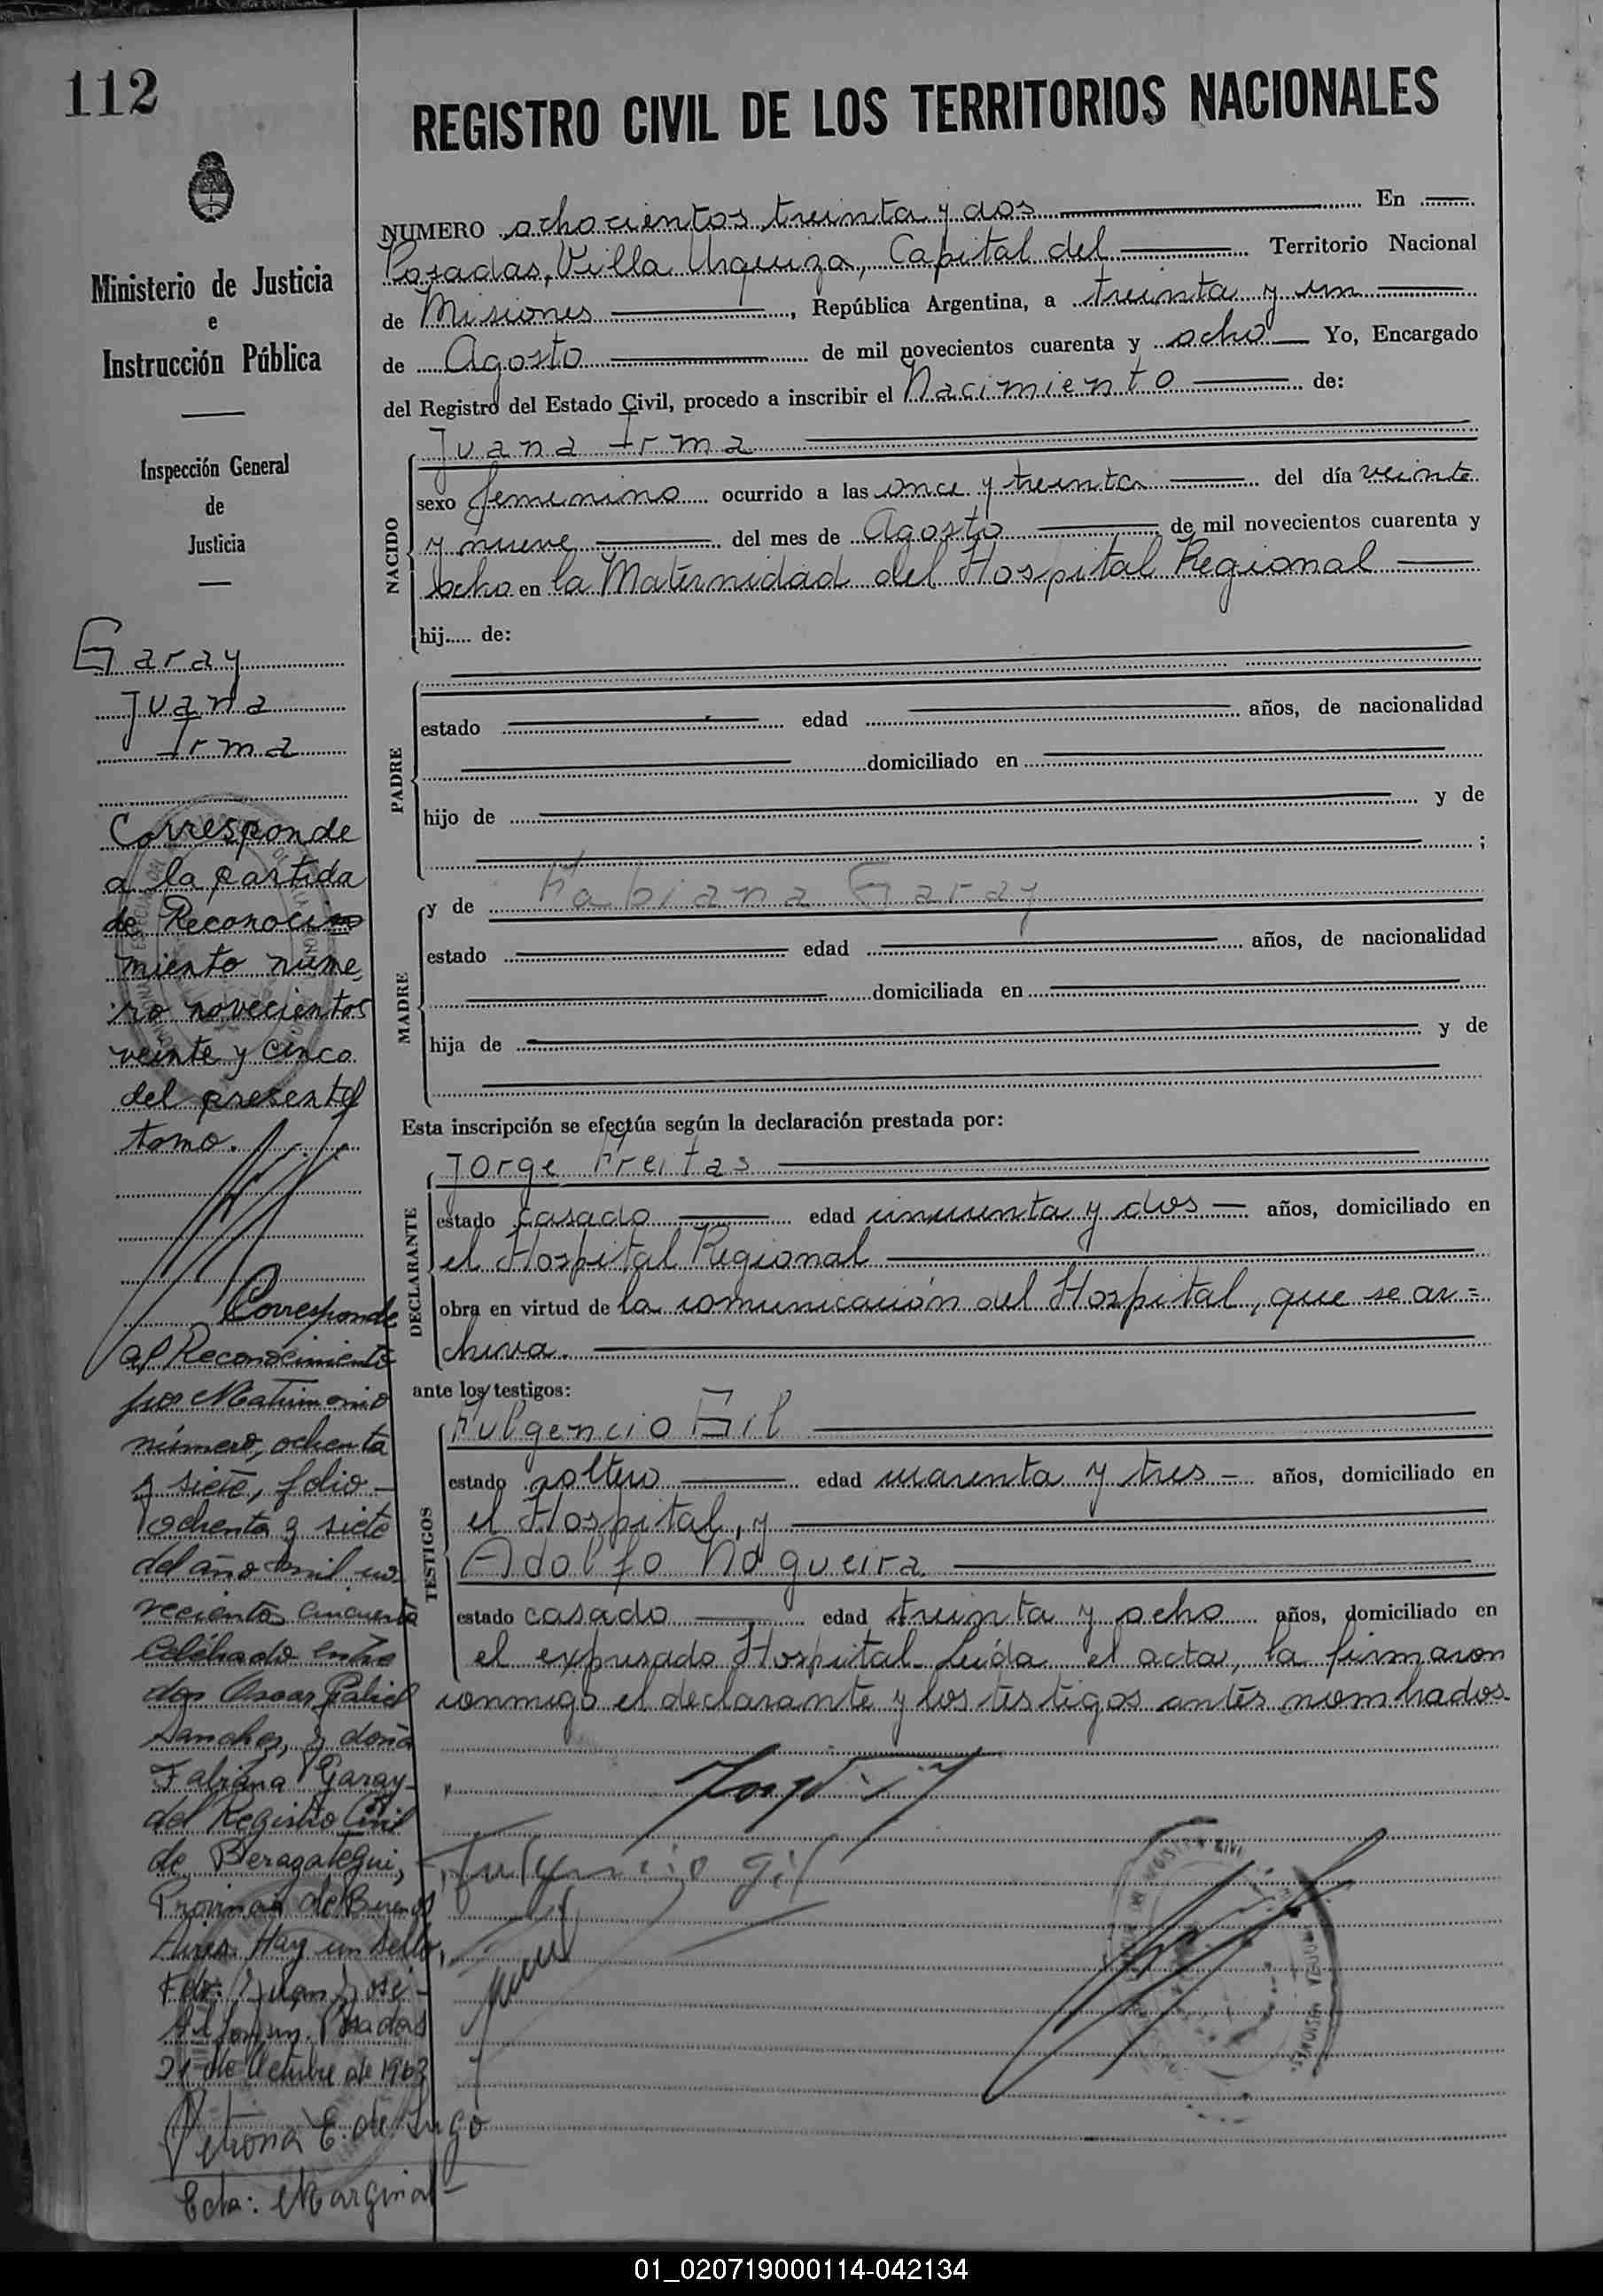 112
REGISTRO CIVIL DE LOS TERRITORIOS NACIONALES
Ministerio de Justicia
e
Instrucción Pública
Inspección General
de
Justicia
Garay
Juana
Irma
Corresponde
a la partida
de Reconoci
miento núme
ro novecientos
veinte y cinco
del presente
tomo.
Corresponde
al Reconocimiento
por Matrimonio
número, ochenta
y siete, folio
ochenta y siete
del año mil no
vecientos cincuenta
Celebrado entre
don Oscar Gabiel
Sanchez, y doña
Fabiana Garay
del Registro Civil
de Berazategui,
Provincia de Buenos
Aires. Hay un sello,
Fdo: Juan José
Posadas
21 de Octubre de 1963
Petrona E. de Lugo
Ecda: Marginal
NUMERO ochocientos treinta y dos En
Posadas, Villa Urquiza, Capital del Territorio Nacional
de Misiones, República Argentina, a treinta y un
de Agosto de mil novecientos cuarenta y ocho Yo, Encargado
del Registro del Estado Civil, procedo a inscribir el Nacimiento de:
NACIDO
Juana Irma
sexo femenino ocurrido a las once y treinta del día veinte
y nueve del mes de Agosto de mil novecientos cuarenta y
ocho en la Maternidad del Hospital Regional
hij..... de:
PADRE
estado edad años, de nacionalidad
domiciliado en
hijo de y de
;
MADRE
y de Fabiana Garay
estado edad años, de nacionalidad
domiciliada en
hija de y de
Esta inscripción se efectúa según la declaración prestada por:
DECLARANTE
Jorge Freitas
estado casado edad cincuenta y dos años, domiciliado en
el Hospital Regional
obra en virtud de la comunicación del Hospital, que se ar=
chiva.
ante los testigos:
TESTIGOS
Fulgencio Gil
estado soltero edad cuarenta y tres años, domiciliado en
el Hospital, y
Adolfo Nogueira
estado casado edad treinta y ocho años, domiciliado en
el expresado Hospital. Leída el acta, la firmaron
conmigo el declarante y los testigos antes nombrados.
Fulgencio Gil
01_020719000114-042134